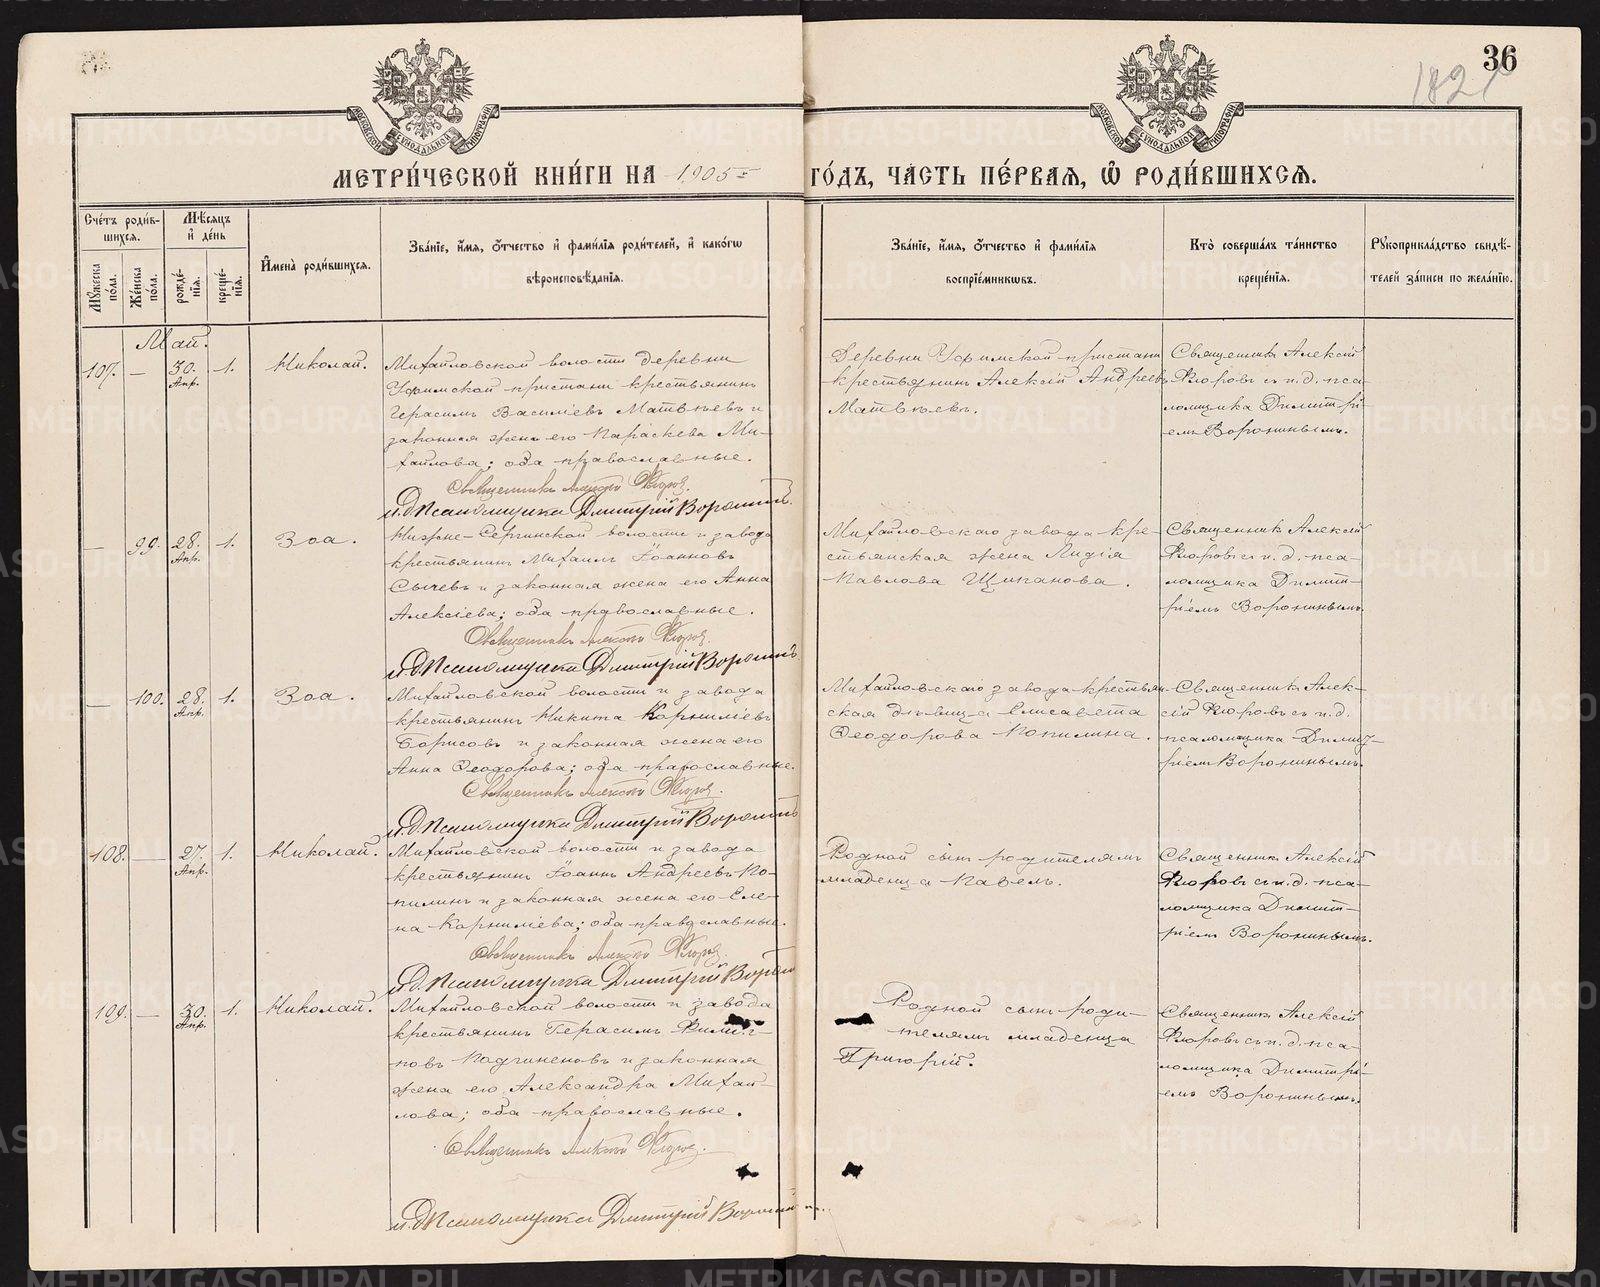 36
1821
МЕТРИ́ЧЕСКОЙ КНИ́ГИ НА 1905 ГО́ДЪ, ЧА́СТЬ ПЕ́РВАЯ, Ѡ҆ РОДИ́ВШИХСѦ.
МОСКОВСКОЙ СѴНОДАЛЬНОЙ ТИПОГРАФІИ
МОСКОВСКОЙ СѴНОДАЛЬНОЙ ТИПОГРАФІИ
Сче́тъ роди́в-
шихсѧ.
Мꙋжеска по́ла.
Же́нска по́ла.
Мѣ́сѧцъ
и҆ де́нь
рожде́-
нїѧ.
креще́-
нїѧ.
И҆мена̀ роди́вшихсѧ.
Зва́нїе, и҆́мѧ, ѻ҆́тчество и҆ фами́лїѧ роди́телей, и҆ како́гѡ
вѣроисповѣ́данїѧ.
Зва́нїе, и҆́мѧ, ѻ҆́тчество и҆ фами́лїѧ
воспрїе́мникѡвъ.
Кто̀ соверша́лъ та́инство
креще́нїѧ.
Рꙋкоприкла́дство свидѣ́-
телей за́писи по жела́нїю.
Май.
107. — 30. Апр. 1. Николай.
Михайловской волости деревни
Уфимской пристани крестьянинъ
Герасимъ Василіевъ Матвѣевъ и
законная жена его Параскева Ми-
хайлова; оба православные.
Священникъ Алексій Флоровъ
и.д. Псаломщика Дмитрій Воронинъ.
Деревни Уфимской пристани
крестьянинъ Алексій Андреевъ
Матвѣевъ.
Священникъ Алексій
Флоровъ съ и. д. пса-
ломщика Димитрі-
емъ Воронинымъ.
— 99. 28. Апр. 1. Зоа.
Нижне-Сергинской волости и завода
крестьянинъ Михаилъ Іоанновъ
Сычевъ и законная жена его Анна
Алексіева; оба православные.
Священникъ Алексій Флоровъ
и.д. Псаломщика Дмитрій Воронинъ
Михайловскаго завода кре-
стьянская жена Лидія
Павлова Щипанова.
Священникъ Алексій
Флоровъ съ и. д. пса-
ломщика Димит-
ріемъ Воронинымъ.
— 100. 28. Апр. 1. Зоа.
Михайловской волости и завода
крестьянинъ Никита Корниліевъ
Борисовъ и законная жена его
Анна Ѳеодорова; оба православные.
Священникъ Алексій Флоровъ
и.д. Псаломщика Дмитрій Воронинъ
Михайловскаго завода крестьян-
ская дѣвица Елисавета
Ѳеодорова Попилина.
Священникъ Алек-
сій Флоровъ съ и. д.
псаломщика Димит-
ріемъ Воронинымъ.
108. — 27. Апр. 1. Николай.
Михайловской волости и завода
крестьянинъ Іоаннъ Андреевъ По-
пилинъ и законная жена его Еле-
на Корниліева; оба православные.
Священникъ Алексій Флоровъ
и.д. Псаломщика Дмитрій Воронин
Родной сынъ родителямъ
младенца Павелъ.
Священникъ Алексій
Флоровъ съ и. д. пса-
ломщика Димит-
ріемъ Воронинымъ.
109. — 30. Апр. 1. Николай.
Михайловской волости и завода
крестьянинъ Герасимъ Филип-
повъ Подчиненовъ и законная
жена его Александра Михай-
лова; оба православные.
Священникъ Алексій Флоровъ
и.д. Псаломщика Дмитрій Воронин
Родной сынъ роди-
телямъ младенца
Григорій.
Священникъ Алексій
Флоровъ съ и. д. пса-
ломщика Димитрі-
емъ Воронинымъ.
METRIKI.GASO-URAL.RU